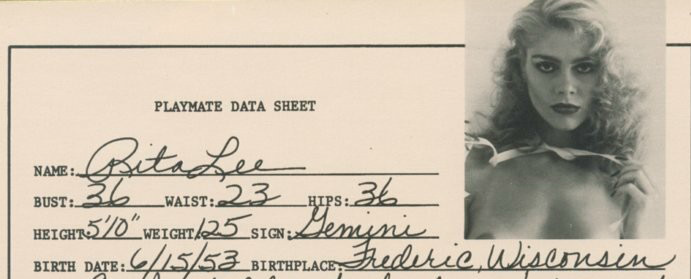 PLAYMATE DATA SHEET
NAME: Rita Lee
BUST: 36 WAIST: 23 HIPS: 36
HEIGHT: 5'10" WEIGHT: 125 SIGN: Gemini
BIRTH DATE: 6/15/53 BIRTHPLACE: Frederic, Wisconsin